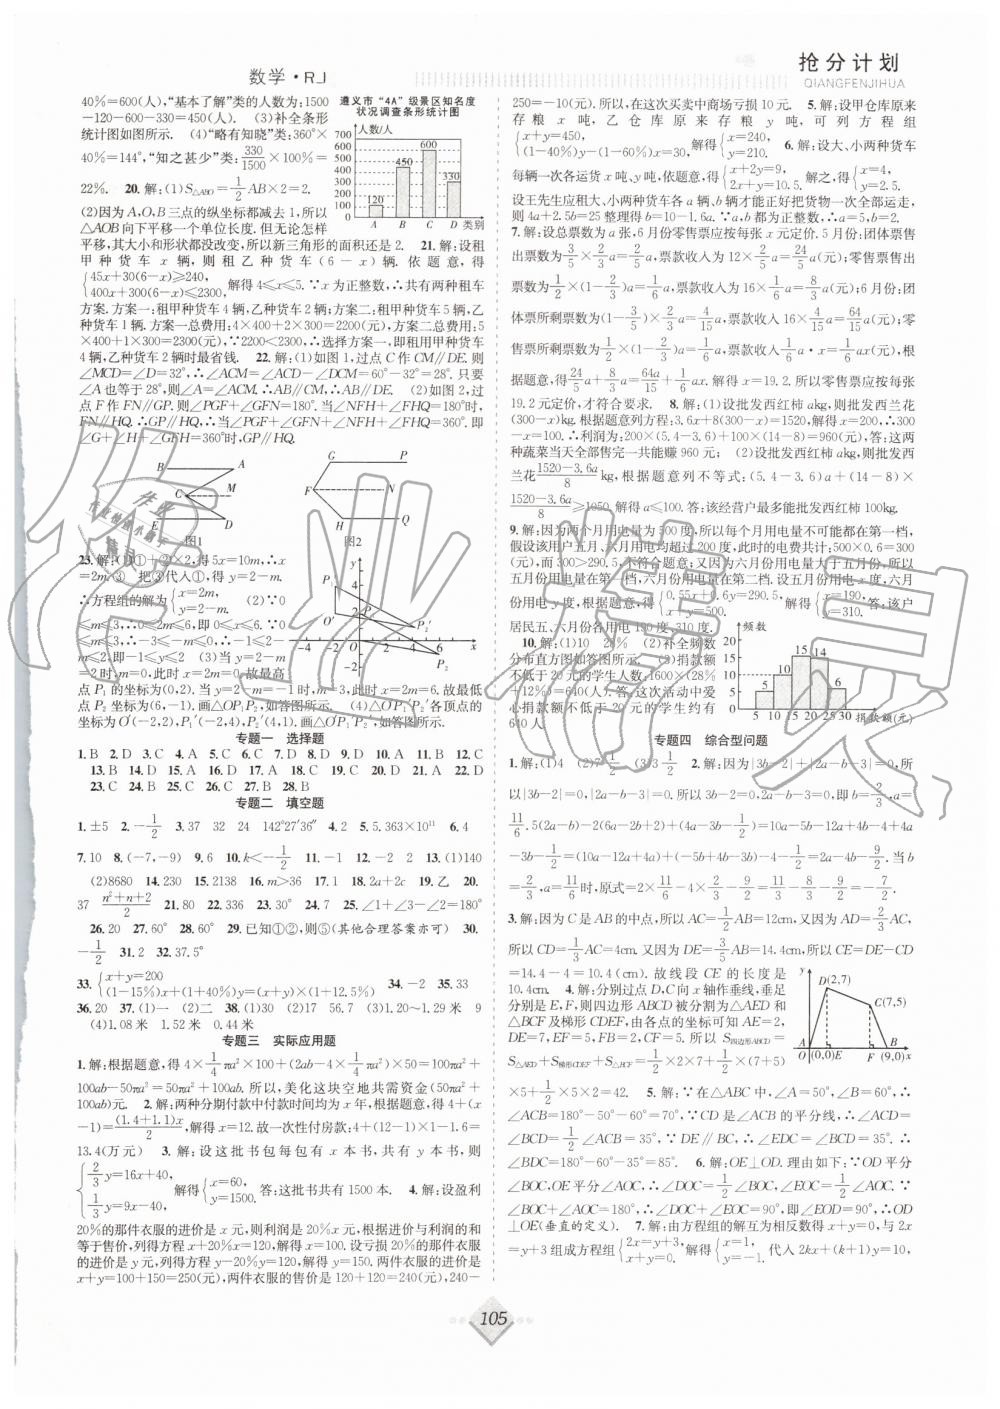 数学·RJ
抢分计划
QIANGFENJIHUA
40%=600(人),“基本了解”类的人数为:1500
-120-600-330=450(人). (3)补全条形
统计图如图所示. (4)“略有知晓”类:360°×
40%=144°,“知之甚少”类:330/1500×100%=
22%. 20. 解:(1)S△ABO=1/2AB×2=2.
(2)因为A,O,B三点的纵坐标都减去1,所以
△AOB向下平移一个单位长度.但无论怎样
平移,其大小和形状都没改变,所以新三角形的面积还是2. 21. 解:设租
甲种货车x辆,则租乙种货车(6-x)辆.依题意,得
{45x+30(6-x)≥240,
400x+300(6-x)≤2300, 解得4≤x≤5. ∵x为正整数,∴共有两种租车
方案.方案一:租甲种货车4辆,乙种货车2辆;方案二:租甲种货车5辆,乙
种货车1辆.方案一总费用:4×400+2×300=2200(元),方案二总费用:5
×400+1×300=2300(元),∵2200<2300,∴选择方案一,即租用甲种货车
4辆,乙种货车2辆时最省钱. 22. 解:(1)如图1,过点C作CM∥DE.则
∠MCD=∠D=32°,∴∠ACM=∠ACD-∠DCM=60°-32°=28°.只要
∠A也等于28°,则∠A=∠ACM.∴AB∥CM,∴AB∥DE. (2)如图2,过
点F作FN∥GP.则∠PGF+∠GFN=180°.当∠NFH+∠FHQ=180°时,
FN∥HQ.∴GP∥HQ,∴当∠PGF+∠GFN+∠NFH+∠FHQ=360°.即
∠G+∠H+∠GFH=360°时,GP∥HQ.
遵义市“4A”级景区知名度
状况调查条形统计图
人数/人
700
600
500
400
300
200
100
0
120
450
600
330
A B C D 类别
B A
C M
E D
图1
G P
F N
H Q
图2
23. 解:(1)①+②×2,得5x=10m,∴x
=2m.③ 把③代入①,得y=2-m.
∴方程组的解为{x=2m,
y=2-m. (2)∵0
≤m≤3,∴0≤2m≤6,即0≤x≤6.∵0
≤m≤3,∴-3≤-m≤0,∴-1≤2-
m≤2,即-1≤y≤2. (3)当y=
2-m=2时,m=0,此时x=2m=0.故最高
点P1的坐标为(0,2).当y=2-m=-1时,m=3,此时x=2m=6.故最低
点P2的坐标为(6,-1).画△OP1P2,如答图所示. (4)△O′P1′P2′各顶点的
坐标为O′(-2,2),P1′(-2,4),P2′(4,1).画△O′P1′P2′,如答图所示.
专题一 选择题
1. B 2. D 3. C 4. A 5. C 6. C 7. D 8. C 9. D 10. A 11. B 12. C
13. B 14. D 15. A 16. C 17. C 18. C 19. C 20. A 21. D 22. D
23. C 24. B 25. A 26. B 27. B 28. B
专题二 填空题
1. ±5 2. -1/2 3. 37 32 24 142°27′36″ 4. 2 5. 5.363×10¹¹ 6. 4
7. 10 8. (-7,-9) 9. 6 10. k<-1/2 11. -1 12. -2 2 13. (1)140
(2)8680 14. 230 15. 190 16. m>36 17. 1 18. 2a+2c 19. 乙 20.
37 (n²+n+2)/2 21. 80 22. 336 23. 30° 24. 7 25. ∠1+∠3-∠2=180°
26. 20 27. 60° 28. 60° 29. 已知①②,则⑤(其他合理答案亦可) 30.
-1/2 31. 2 32. 37.5°
33. {x+y=200
(1-15%)x+(1+40%)y=(x+y)×(1+12.5%) 34. -2 35. 33
36. 20 37. (1)一 (2)二 38. (1)30 (2)17 56.7 (3)1.20~1.29米 9
(4)1.08米 1.52米 0.44米
专题三 实际应用题
1. 解:根据题意,得4×1/4πa²×100+(2ab-4×1/4πa²)×50=100πa²+
100ab-50πa²=50πa²+100ab.所以,美化这块空地共需资金(50πa²+
100ab)元. 2. 解:两种分期付款中付款时间均为x年,根据题意,得4+(x
-1)=(1.4+1.1)x/2,解得x=12.故一次性付房款:4+(12-1)×1-1.6=
13.4(万元) 3. 解:设这批书包每包有x本书,共有y本书,则
{2/3y=16x+40,
1/3y=9x-40, 解得{x=60,
y=1500. 答:这批书共有1500本. 4. 解:设盈利
20%的那件衣服的进价是x元,则利润是20%x元,根据进价与利润的和
等于售价,列得方程x+20%x=120,解得x=100.设亏损20%的那件衣服
的进价是y元,列得方程y-20%y=120,解得y=150.两件衣服的进价是
x+y=100+150=250(元),两件衣服的售价是120+120=240(元),240-
250=-10(元).所以,在这次买卖中商场亏损10元. 5. 解:设甲仓库原来
存粮x吨,乙仓库原来存粮y吨,可列方程组
{x+y=450,
(1-40%)y-(1-60%)x=30, 解得{x=240,
y=210. 6. 解:设大、小两种货车
每辆一次各运货x吨、y吨,依题意,得{x+2y=9,
2x+y=10.5. 解之,得{x=4,
y=2.5.
设王先生应租大、小两种货车各a辆、b辆才能正好把货物一次全部运走,
则4a+2.5b=25整理得b=10-1.6a.∵a,b都为正整数,∴a=5,b=2.
7. 解:设总票数为a张,6月份零售票应按每张x元定价.5月份:团体票售
出票数为3/5×2/3a=2/5a(张),票款收入为12×2/5a=24/5a(元);零售票售出
票数为1/2×(1-2/3)a=1/6a(张),票款收入为16×1/6a=8/3a(元);6月份:团
体票所剩票数为(1-3/5)×2/3a=4/15a(张),票款收入16×4/15a=64/15a(元);零
售票所剩票数为1/2×(1-2/3)a=1/6a(张),票款收入1/6a·x=1/6ax(元),根
据题意,得24/5a+8/3a=64/15a+1/6ax. 解得x=19.2.所以零售票应按每张
19.2元定价,才符合要求. 8. 解:(1)设批发西红柿akg,则批发西兰花
(300-x)kg.根据题意列方程:3.6x+8(300-x)=1520,解得x=200,∴300
-x=100.∴利润为:200×(5.4-3.6)+100×(14-8)=960(元),答:这两
种蔬菜当天全部售完一共能赚960元; (2)设批发西红柿akg,则批发西
兰花(1520-3.6a)/8kg,根据题意列不等式:(5.4-3.6)a+(14-8)×
(1520-3.6a)/8≥1050.解得a≤100.答:该经营户最多能批发西红柿100kg.
9. 解:因为两个月用电量为500度,所以每个月用电量不可能都在第一档,
假设该用户五月、六月每月用电均超过200度,此时的电费共计:500×0.6=300
(元),而300>290.5,不符合题意;又因为六月份用电量大于五月份,所以
五月份用电量在第一档,六月份用电量在第二档.设五月份用电x度,六月
份用电y度,根据题意,得{0.55x+0.6y=290.5,
x+y=500. 解得{x=190,
y=310. 答:该户
居民五、六月份各用电190度、310度.
10. 解:(1)10 28% (2)补全频数
分布直方图如答图所示; (3)捐款额
不低于20元的学生人数:1600×(28%
+12%)=640(人).答:这次活动中爱
心捐款额不低于20元的学生约有
640人.
频数
20
15
10
5
0
5 10 15 14 6
5 10 15 20 25 30 捐款额(元)
专题四 综合型问题
1. 解:(1)4 (2)7 1/2 (3)3 1/2 2. 解:因为|3b-2|+|2a-b-3|=0,所
以|3b-2|=0,|2a-b-3|=0.所以3b-2=0,2a-b-3=0,即b=2/3,a=
11/6. 5(2a-b)-2(6a-2b+2)+(4a-3b-1/2)=10a-5b-12a+4b-4+4a
-3b-1/2=(10a-12a+4a)+(-5b+4b-3b)-4-1/2=2a-4b-9/2.当b
=2/3,a=11/6时,原式=2×11/6-4×2/3-9/2=11/3-8/3-9/2=-7/2.
3. 解:因为C是AB的中点,所以AC=1/2AB=12cm,又因为AD=2/3AC,
所以CD=1/3AC=4cm.又因为DE=3/5AB=14.4cm,所以CE=DE-CD
=14.4-4=10.4(cm).故线段CE的长度是
10.4cm. 4. 解:分别过点D,C向x轴作垂线,垂足
分别是E,F,则四边形ABCD被分割为△AED和
△BCF及梯形CDEF,由各点的坐标可知AE=2,
DE=7,EF=5,FB=2,CF=5.所以S四边形ABCD=
S△AED+S梯形CDEF+S△BCF=1/2×2×7+1/2×(7+5)
×5+1/2×5×2=42. 5. 解:∵在△ABC中,∠A=50°,∠B=60°,∴
∠ACB=180°-50°-60°=70°,∵CD是∠ACB的平分线,∴∠ACD=
∠BCD=1/2∠ACB=35°,∵DE∥BC,∴∠EDC=∠BCD=35°.∴
∠BDC=180°-60°-35°=85°. 6. 解:OE⊥OD.理由如下:∵OD平分
∠BOC,OE平分∠AOC,∴∠DOC=1/2∠BOC,∠EOC=1/2∠AOC.∵
∠BOC+∠AOC=180°,∴∠DOC+∠EOC=90°,即∠EOD=90°,∴OD
⊥OE(垂直的定义). 7. 解:由方程组的解互为相反数得x+y=0,与2x
=y+3组成方程组{2x=y+3,
x+y=0, 解得{x=1,
y=-1. 代入2kx+(k+1)y=10,
y
D(2,7)
C(7,5)
A B
O (0,0)E F (9,0) x
105